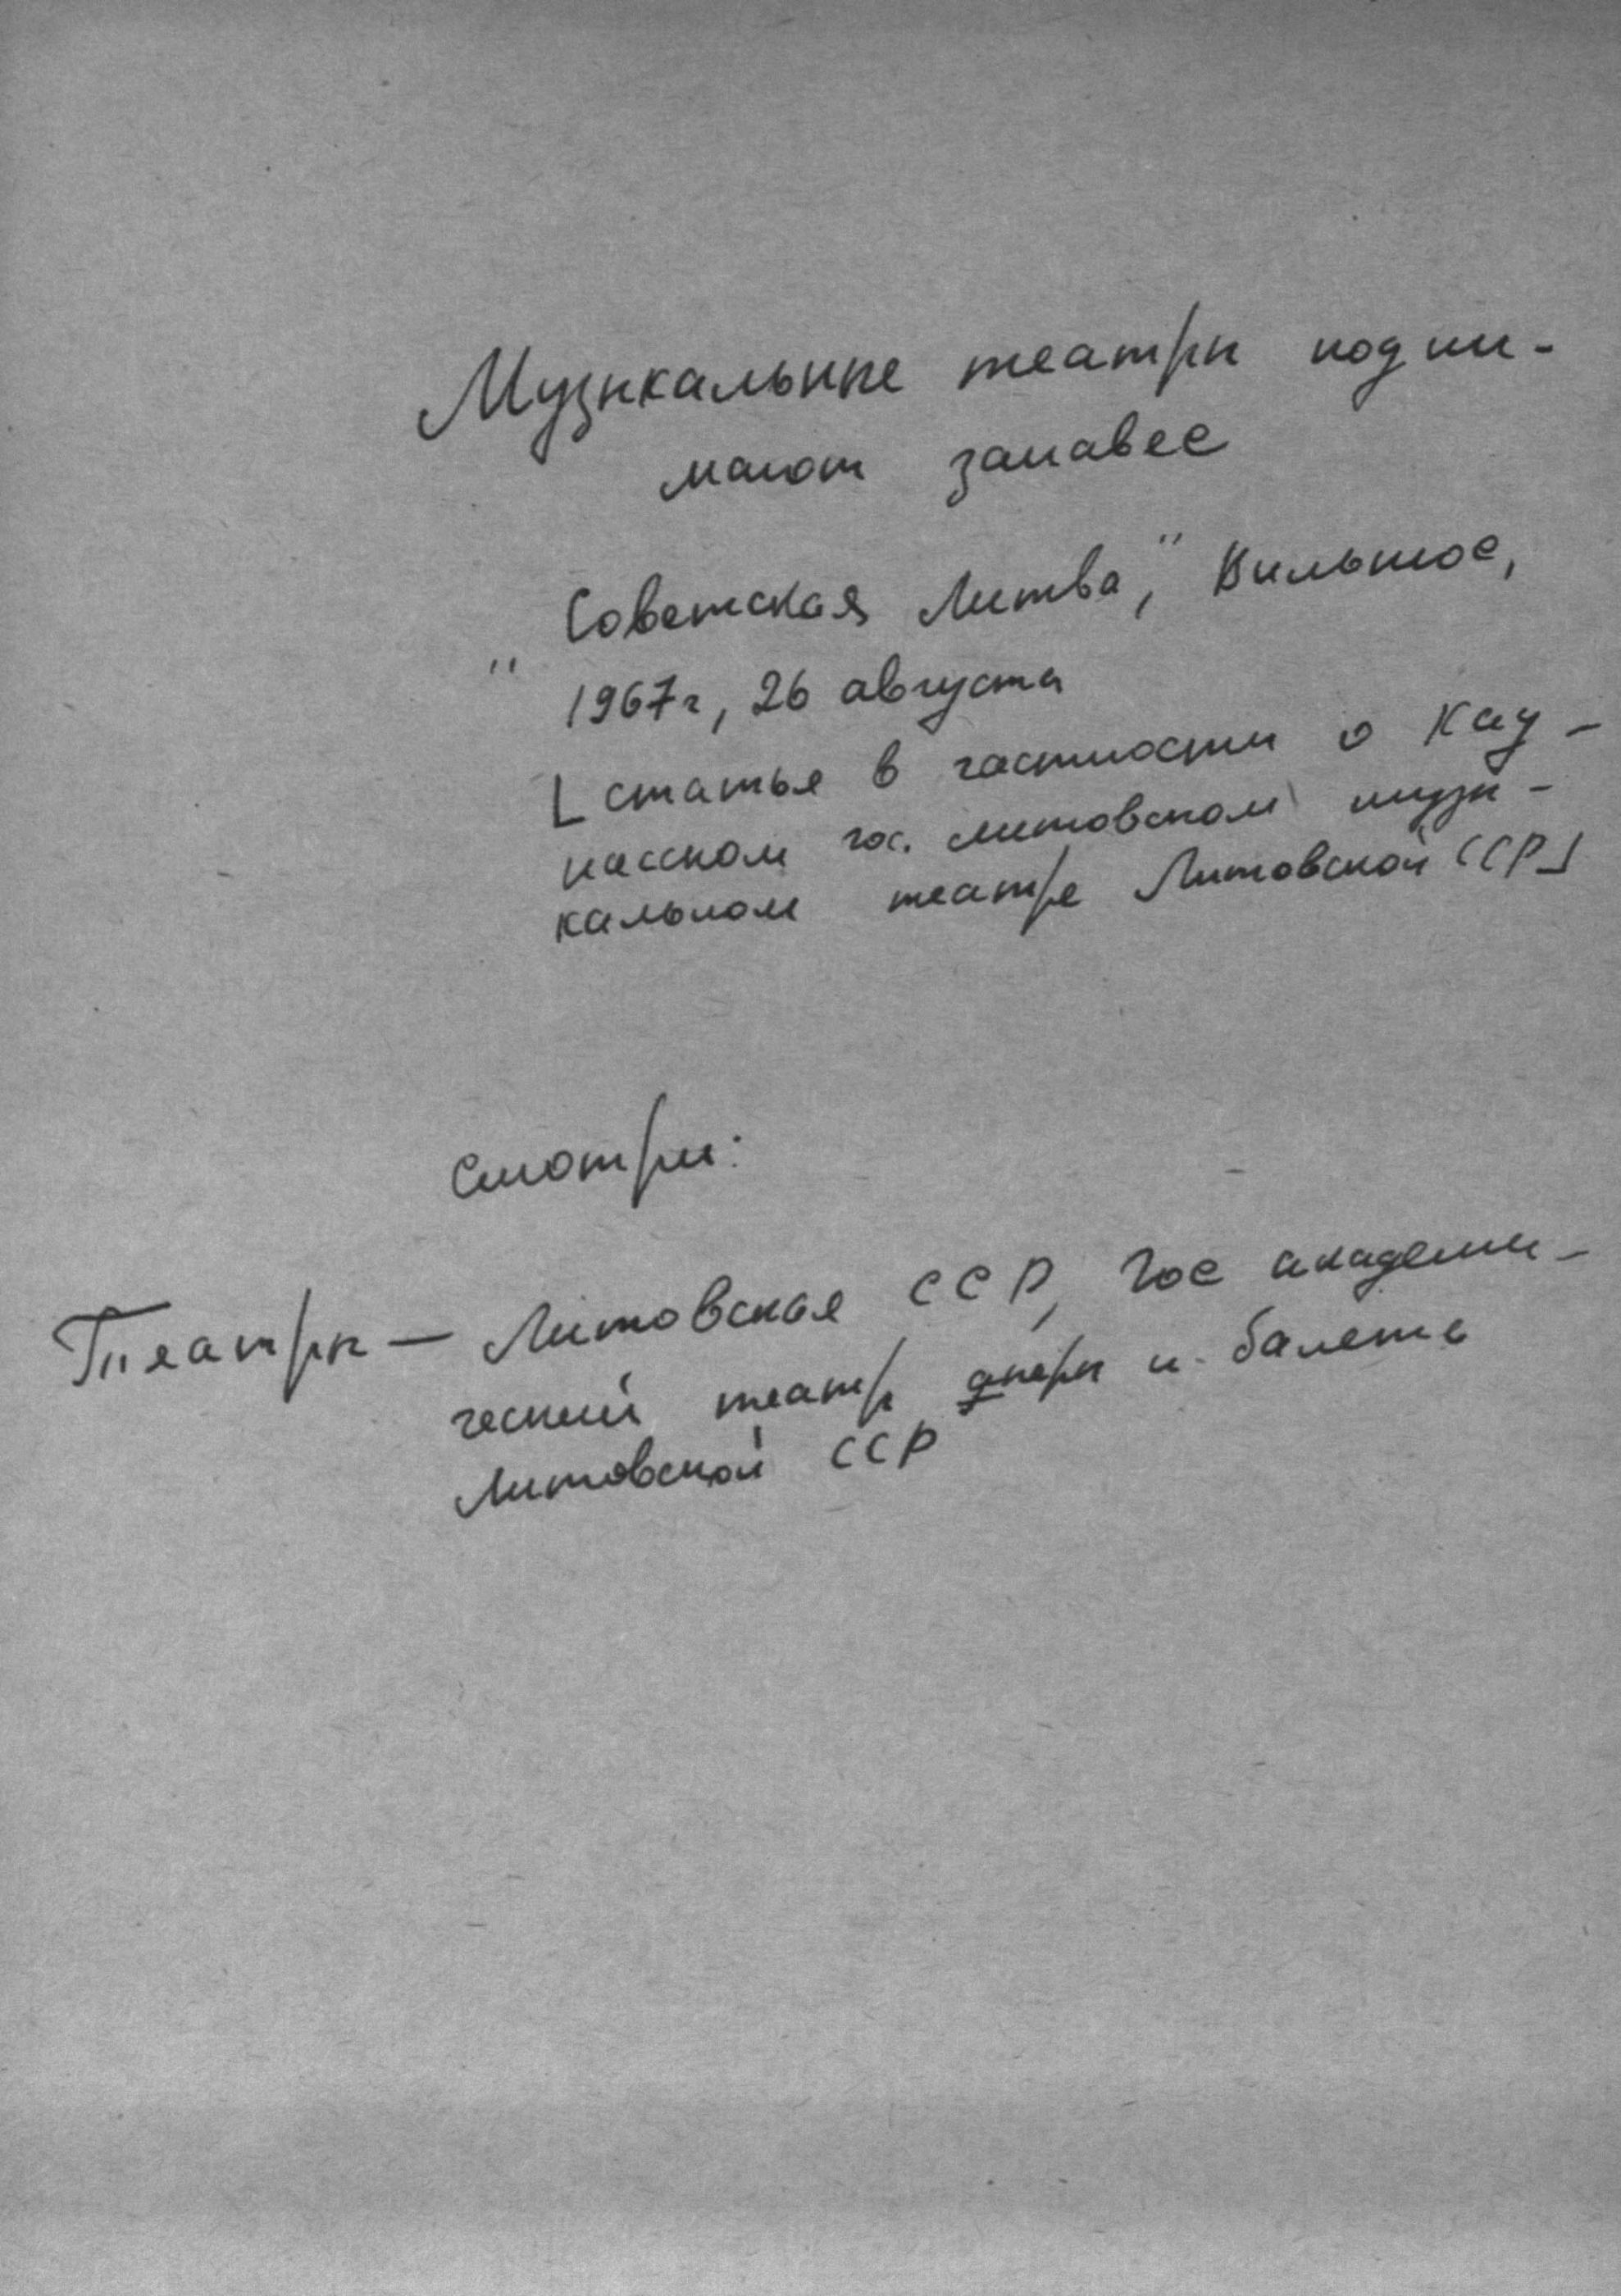 Музыкальные театры подни-
мают занавес
"Советская Литва", Вильнюс,
1967г, 26 августа
[статья в частности о Кау-
насском гос. литовском музы-
кальном театре Литовской ССР]
Смотри:
Театры — Литовская ССР, Гос академи-
ческий театр оперы и балета
Литовской ССР